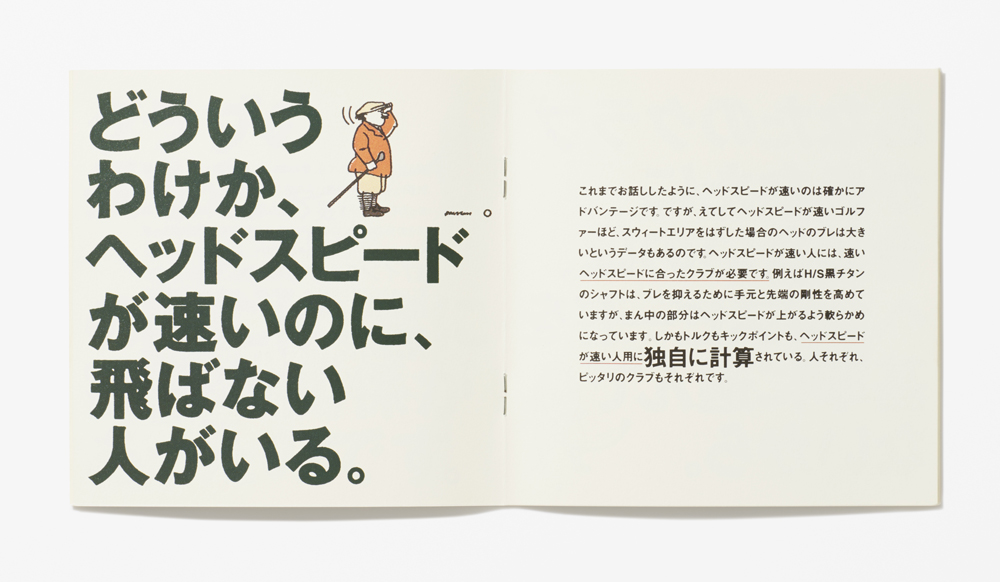 どういう
わけか、
ヘッドスピード
が速いのに、
飛ばない
人がいる。
これまでお話ししたように、ヘッドスピードが速いのは確かにア
ドバンテージです。ですが、えてしてヘッドスピードが速いゴルフ
ァーほど、スウィートエリアをはずした場合のヘッドのブレは大き
いというデータもあるのです。ヘッドスピードが速い人には、速い
ヘッドスピードに合ったクラブが必要です。例えばH/S黒チタン
のシャフトは、ブレを抑えるために手元と先端の剛性を高めて
いますが、まん中の部分はヘッドスピードが上がるよう軟らかめ
になっています。しかもトルクもキックポイントも、ヘッドスピード
が速い人用に独自に計算されている。人それぞれ、
ピッタリのクラブもそれぞれです。